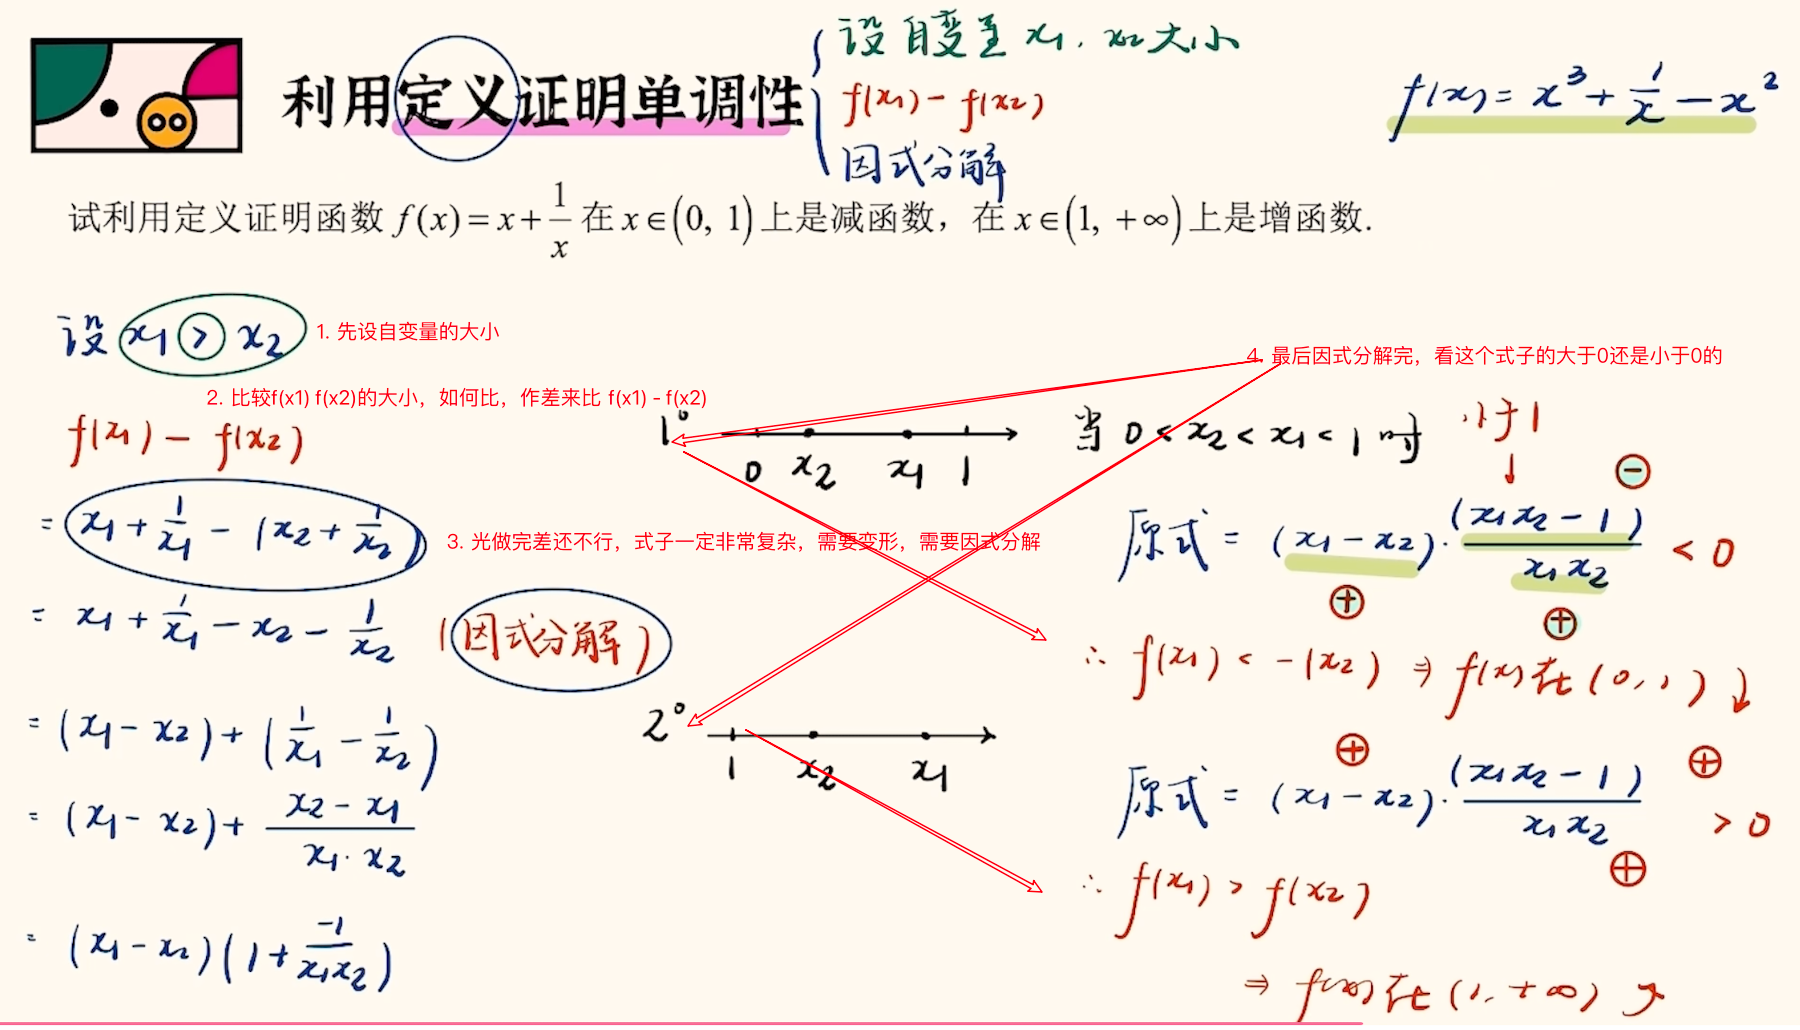 利用定义证明单调性
设自变量 x₁, x₂ 大小
f(x₁) - f(x₂)
因式分解
f(x) = x³ + 1/x - x²
试利用定义证明函数 f(x) = x + 1/x 在 x∈(0, 1) 上是减函数，在 x∈(1, +∞) 上是增函数.
设 x₁ > x₂
1. 先设自变量的大小
2. 比较f(x1) f(x2)的大小，如何比，作差来比 f(x1) - f(x2)
f(x₁) - f(x₂)
= x₁ + 1/x₁ - (x₂ + 1/x₂)
3. 光做完差还不行，式子一定非常复杂，需要变形，需要因式分解
= x₁ + 1/x₁ - x₂ - 1/x₂ (因式分解)
= (x₁ - x₂) + (1/x₁ - 1/x₂)
= (x₁ - x₂) + (x₂ - x₁)/(x₁·x₂)
= (x₁ - x₂)(1 + -1/(x₁x₂))
4. 最后因式分解完，看这个式子的大于0还是小于0的
1°
0 x₂ x₁ 1
当 0 < x₂ < x₁ < 1 时
小于1
↓
⊖
原式 = (x₁ - x₂)·(x₁x₂ - 1)/(x₁x₂) < 0
⊕ ⊕
∴ f(x₁) < -(x₂) ⇒ f(x) 在 (0, 1) ↓
2°
1 x₂ x₁
⊕ ⊕
原式 = (x₁ - x₂)·(x₁x₂ - 1)/(x₁x₂) > 0
⊕
∴ f(x₁) > f(x₂)
⇒ f(x) 在 (1, +∞) ↗